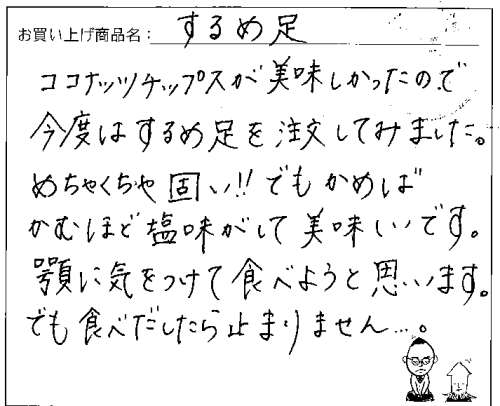 お買い上げ商品名: するめ足
ココナッツチップスが美味しかったので
今度はするめ足を注文してみました。
めちゃくちゃ固い!!でもかめば
かむほど塩味がして美味しいです。
顎に気をつけて食べようと思います。
でも食べだしたら止まりません…。